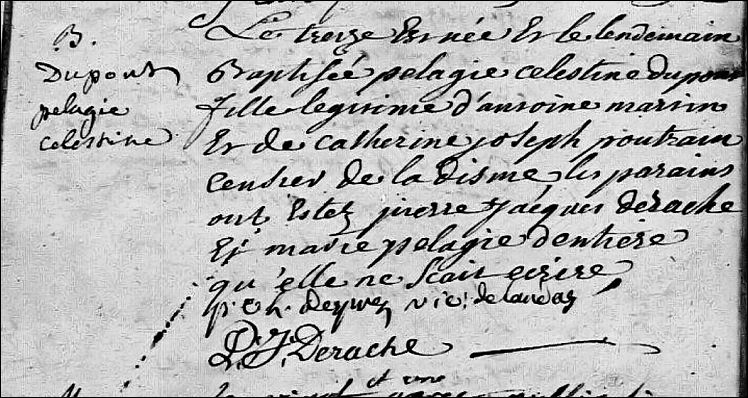 B.
Dupont
pelagie
celestine
Le treize Est née Et le lendemain
Baptisée pelagie celestine dupont
fille legitime d'antoine martin
Et de catherine joseph poutrain
censier de la disme les parains
ont Estez pierre jacques derache
Et marie pelagie dentiere
qu'elle ne scait ecrire,
vic: de landas
P. J. Derache
et une